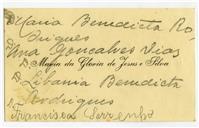 Maria Benedicta Ro-
drigues
Ana Gonçalves Dias
Maria da Gloria de Jesus e Silva
Libania Benedicta
Rodrigues
Francisca